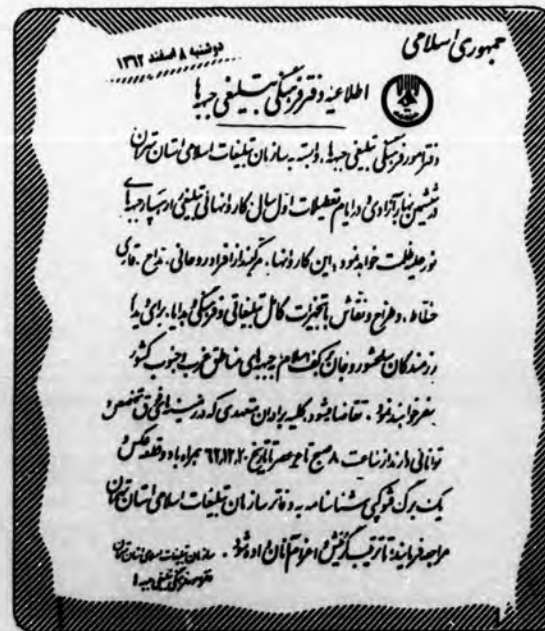 جمهوری اسلامی
دوشنبه ۸ اسفند ۱۳۶۲
اطلاعیه دفتر فرهنگی تبلیغی جبهه‌ها
دفتر امور فرهنگی تبلیغی جبهه‌ها، وابسته به سازمان تبلیغات اسلامی استان تهران
در ششمین بهار آزادی و در ایام تعطیلات اول سال کاروانهائی تبلیغی رهسپار جبهه‌های
نور علیه ظلمت خواهد نمود، این کاروانها، مرکبند از افراد روحانی، مداح، قاری
خطاط، و طراح و نقاش با تجهیزات کامل تبلیغاتی و فرهنگی و هدایا، برای دیدار
رزمندگان سلحشور و جان بر کف اسلام به جبهه‌های مناطق غرب و جنوب کشور
سفر خواهند نمود. تقاضا میشود کلیه برادران متعهدی که در زمینه‌های فوق تخصص و
توانائی دارند از ساعت ۸ صبح تا عصر تا تاریخ ۶۲٫۱۲٫۲۰ همراه با دو قطعه عکس و
یک برگ فتوکپی شناسنامه به دفاتر سازمان تبلیغات اسلامی استان تهران
مراجعه فرمایند تا ترتیب گزینش و اعزام آنان داده شود.
سازمان تبلیغات اسلامی استان تهران
دفتر امور فرهنگی تبلیغی جبهه‌ها